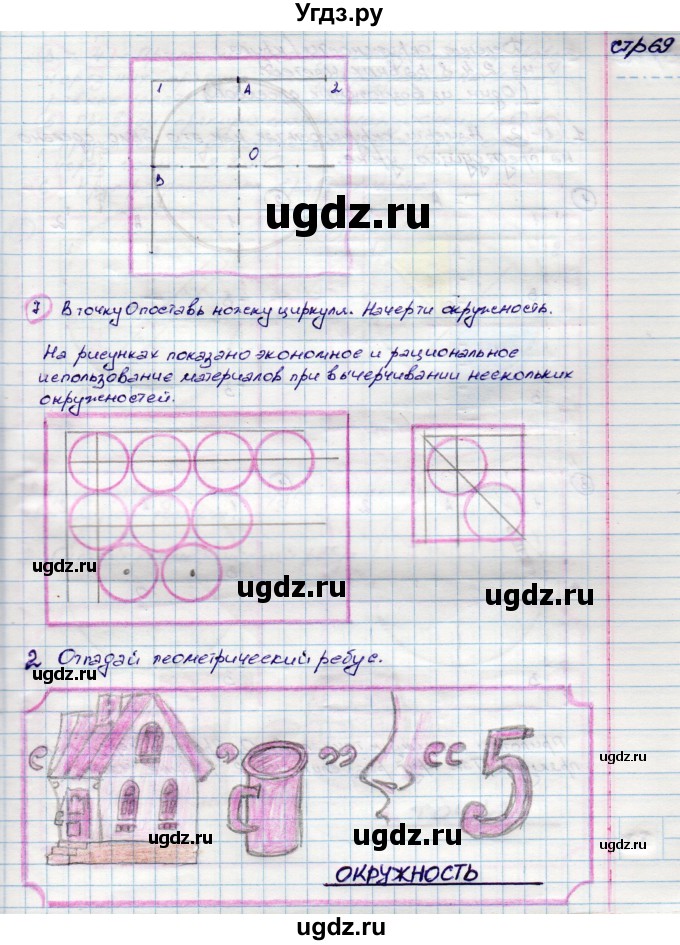 Угдз.ру
стр69
1 A 2
O
B
ugdz.ru
7 В точку О поставь ножку циркуля. Начерти окружность.
На рисунках показано экономное и рациональное
использование материалов при вычерчивании нескольких
окружностей.
ugdz.ru ugdz.ru ugdz.ru
2 Отгадай геометрический ребус.
ugdz.ru
‘ ’ ’’ ‘‘ 5
ugdz.ru
ugdz.ru ugdz.ru ugdz.ru
ОКРУЖНОСТЬ
ugdz.ru